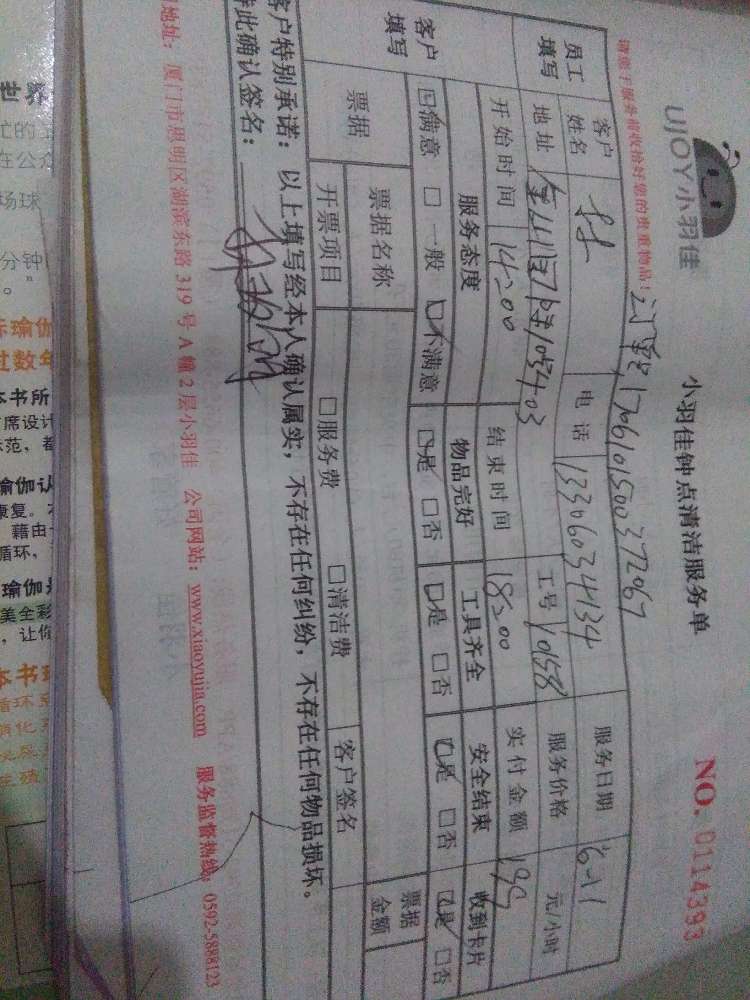 UJOY小羽佳
小羽佳钟点清洁服务单
NO. 0114393
请您于服务前收拾好您的贵重物品!
1706101500372067
员工填写
客户姓名
电话 13306034134
服务日期 6-11
地址
工号 10158
服务价格 元/小时
开始时间 14:00
结束时间 18:00
实付金额 199
客户填写
服务态度
物品完好
工具齐全
安全结束
收到卡片
☑满意 □一般 ☑不满意
☑是 □否
☑是 □否
☑是 □否
☑是 □否
票据
票据名称
票据金额
开票项目
□服务费
□清洁费
客户签名
客户特别承诺:以上填写经本人确认属实,不存在任何纠纷,不存在任何物品损坏。
特此确认签名:
地址: 厦门市思明区湖滨东路 319 号 A 幢 2 层小羽佳 公司网站: www.xiaoyujia.com 服务监督热线: 0592-5888123
世界
在公众
场球
分钟
瑜伽
过数年
本书所
席设计
示范,
瑜伽认
康复。
藉由
循环,
瑜伽是
美全彩
,让你
本书
循环系
消化系